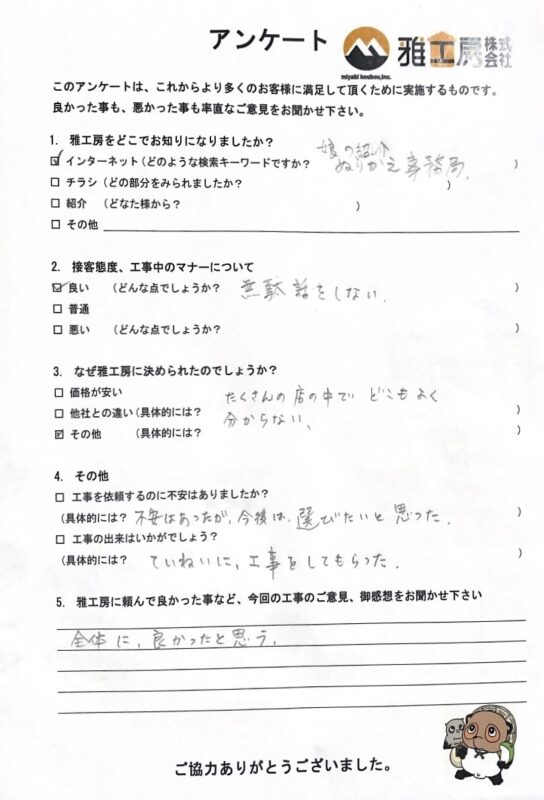 アンケート
雅工房 株式会社
miyabi koubou,inc.
このアンケートは、これからより多くのお客様に満足して頂くために実施するものです。
良かった事も、悪かった事も率直なご意見をお聞かせ下さい。
1. 雅工房をどこでお知りになりましたか?
娘の紹介
☑ インターネット(どのような検索キーワードですか? ぬりかえ事務局. )
□ チラシ (どの部分をみられましたか? )
□ 紹介 (どなた様から? )
□ その他
2. 接客態度、工事中のマナーについて
☑ 良い (どんな点でしょうか? 無駄話をしない. )
□ 普通
□ 悪い (どんな点でしょうか? )
3. なぜ雅工房に決められたのでしょうか?
□ 価格が安い
たくさんの店の中で どこもよく
□ 他社との違い(具体的には? )
分からない、
☑ その他 (具体的には? )
4. その他
□ 工事を依頼するのに不安はありましたか?
(具体的には? 不安はあったが、今後は、選びたいと思った. )
□ 工事の出来はいかがでしょう?
(具体的には? ていねいに、工事をしてもらった. )
5. 雅工房に頼んで良かった事など、今回の工事のご意見、御感想をお聞かせ下さい
全体に、良かったと思う.
ご協力ありがとうございました。